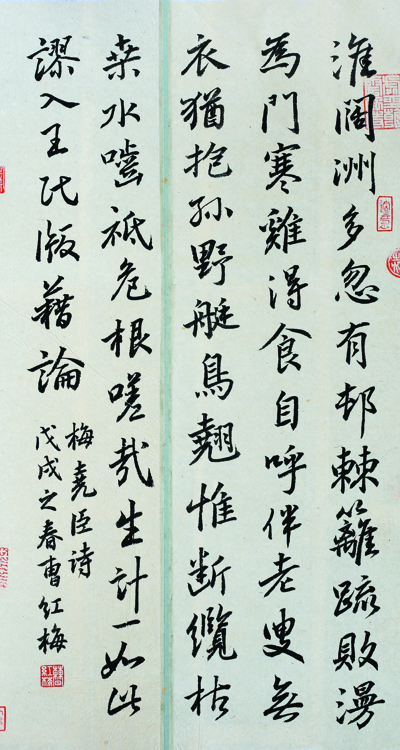 淮闊洲多忽有邨棘籬疏敗漫
為門寒雞得食自呼伴老叟無
衣猶抱孫野艇鳥翹惟断纜枯
桒水嚙祗危根嗟哉生計一如此
謬入王民版藉論
梅堯臣詩
戊戌之春曹紅梅